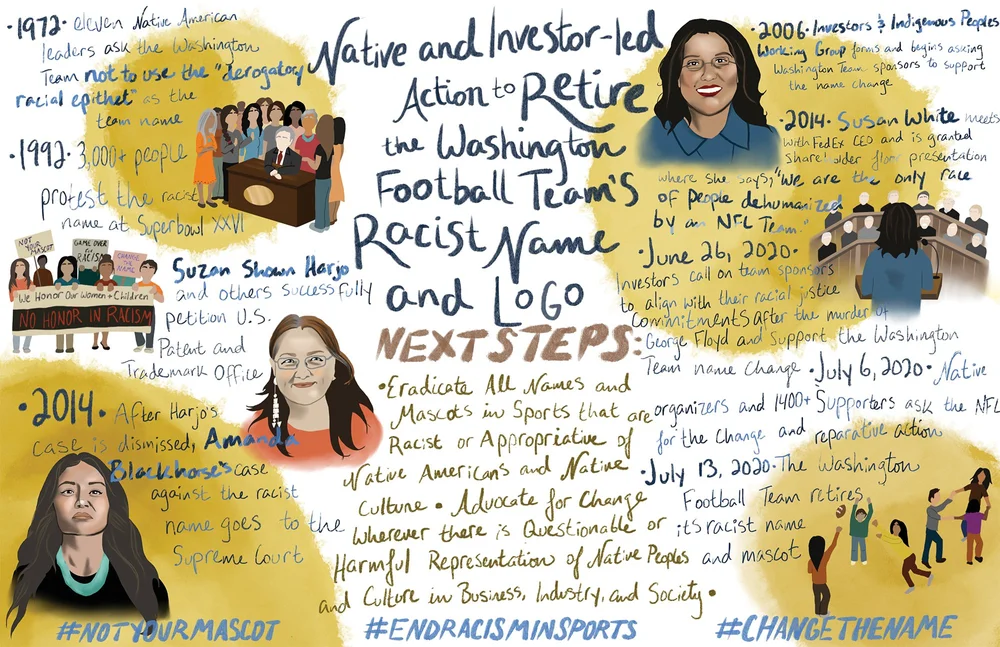 Native and Investor-led
Action to Retire
the Washington
Football Team's
Racist Name
and Logo
•1972• eleven Native American
leaders ask the Washington
Team not to use the "derogatory
racial epithet" as the
team name
•1992• 3,000+ people
protest the racist
name at Superbowl XXVI
NOT YOUR MASCOT
GAME OVER for RACISM
CHANGE THE NAME
We Honor Our Women + Children
NO HONOR IN RACISM
Suzan Shown Harjo
and others successfully
petition U.S.
Patent and
Trademark Office
•2014• After Harjo's
case is dismissed, Amanda
Blackhorse's case
against the racist
name goes to the
Supreme Court
NEXT STEPS:
•Eradicate All Names and
Mascots in Sports that are
Racist or Appropriative of
Native Americans and Native
Culture • Advocate for Change
Wherever there is Questionable or
Harmful Representation of Native Peoples
and Culture in Business, Industry, and Society•
•2006• Investors & Indigenous Peoples
Working Group forms and begins asking
Washington Team sponsors to support
the name change
•2014• Susan White meets
with FedEx CEO and is granted
shareholder floor presentation
where she says, "We are the only race
of people dehumanized
by an NFL Team."
•June 26, 2020•
Investors call on team sponsors
to align with their racial justice
Commitments after the murder of
George Floyd and Support the Washington
Team name Change •July 6, 2020• Native
organizers and 1400+ Supporters ask the NFL
for the Change and reparative action
•July 13, 2020• The Washington
Football Team retires
it's racist name
and mascot
#NOTYOURMASCOT
#ENDRACISMINSPORTS
#CHANGETHENAME